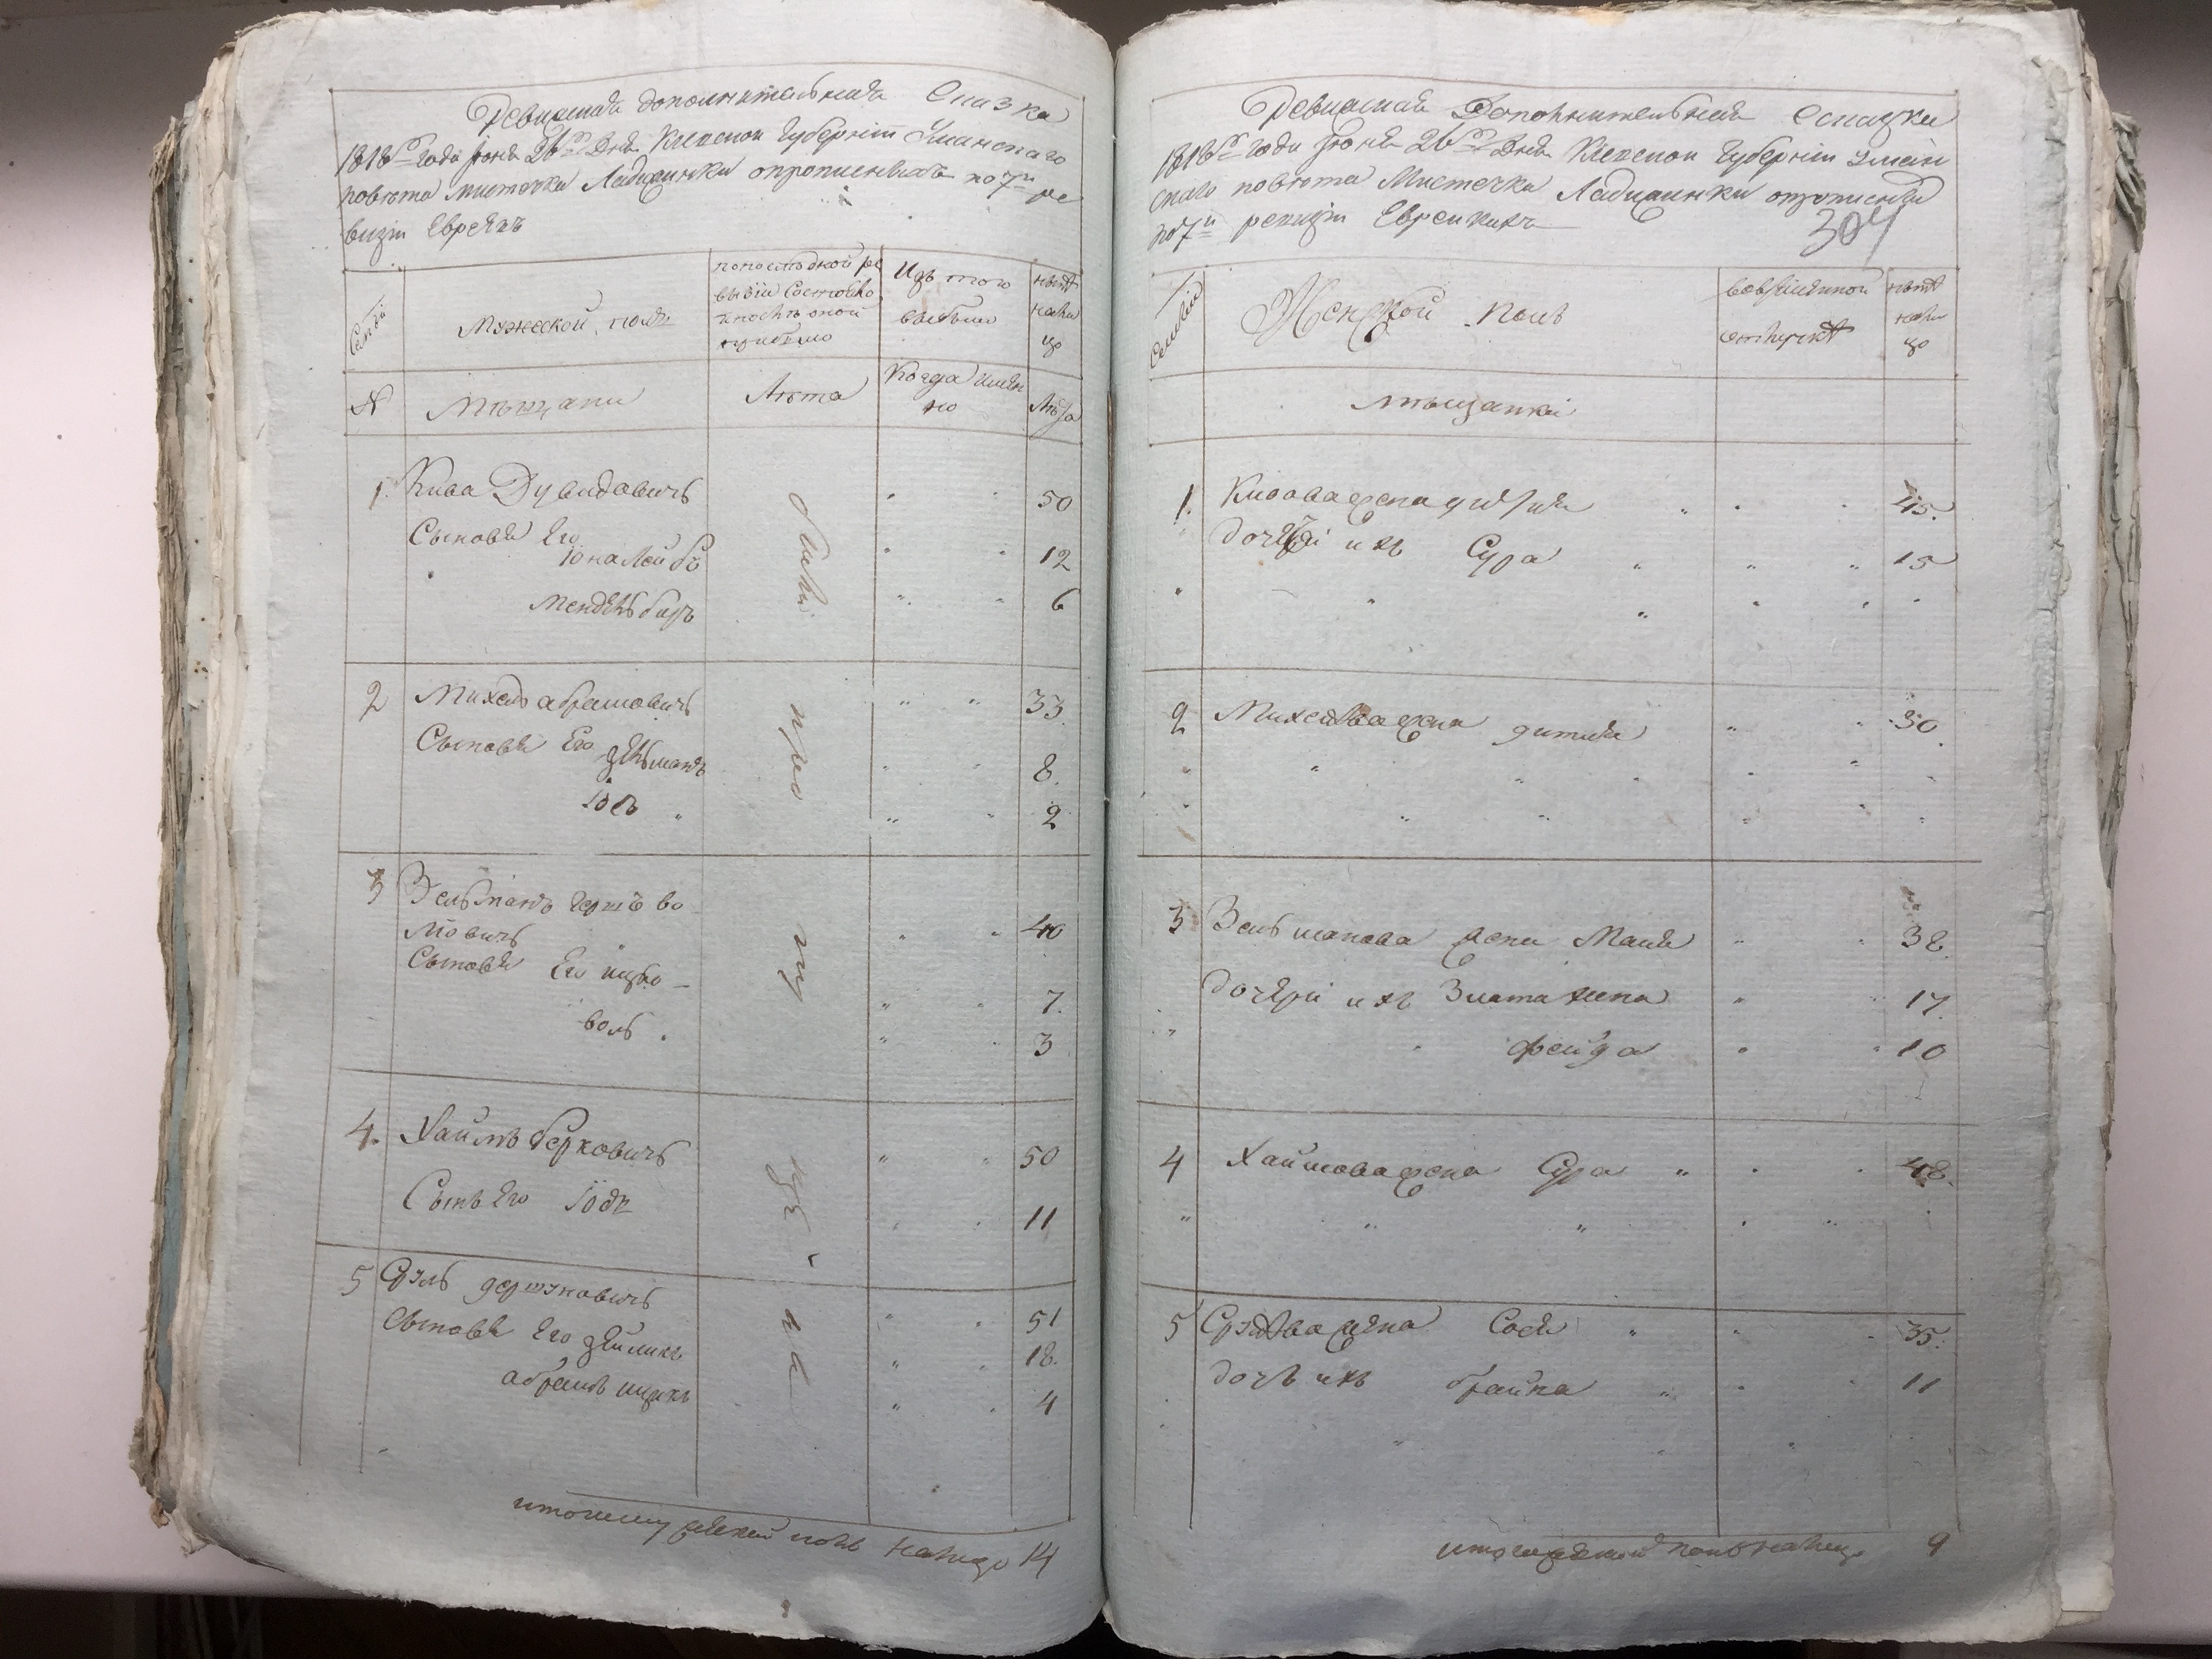 Ревизская дополнительная Сказка
1818го года Июня 26го Дня Киевской Губернии Уманскаго
повѣта мистечка Ладижинки о прописныхъ по 7й ре
визіи Евреяхъ
Мужеской полъ
по последной ре
визіи Состояло
и после оной
прибыло
Изъ того
выбыло
ныне
на ли
цо
№
Мещани
Лѣта
Когда имян
но
Лѣта
были про пу ще н а
1. Кива Дувидовичъ 50
Сыновя Его
Іона Лейба 12
Мендель Беръ 6
2 Михель абрамовичъ 33
Сыновя Его Зельманъ 8.
Іосъ 2
3 Зельманъ Гершъ во
лювичъ 40
Сыновя Его ицко 7.
воль. 3
4. Хаимъ берковичъ 50
Сынъ Его Іосъ 11
5 Срулъ гершковичъ 51
Сыновя Его 18.
абрамъ ицикъ 4
итого мужеска полъ на лицо 14
Ревизская Дополнительная Сказка
1818го года Июня 26го Дня Киевской Губернии Уман
скаго повѣта Мистечка Ладижинки о прописных
по 7й ревизіи Еврейкахъ
304
Семьи
Женской полъ
во временной
отлучкѣ
ныне
на ли
цо
мѣщанкі
1. Кивова жена 45.
дочері ихъ Сура 15
2 Михелева жена 30.
3 Зельманова жена Маня 38.
дочері ихъ Злата хина 17.
фейга 10
4 Хаимова жена Сура 48.
5 Срулева жена Сося 35.
дочь ихъ брайна 11
итого женской полъ на лицо 9